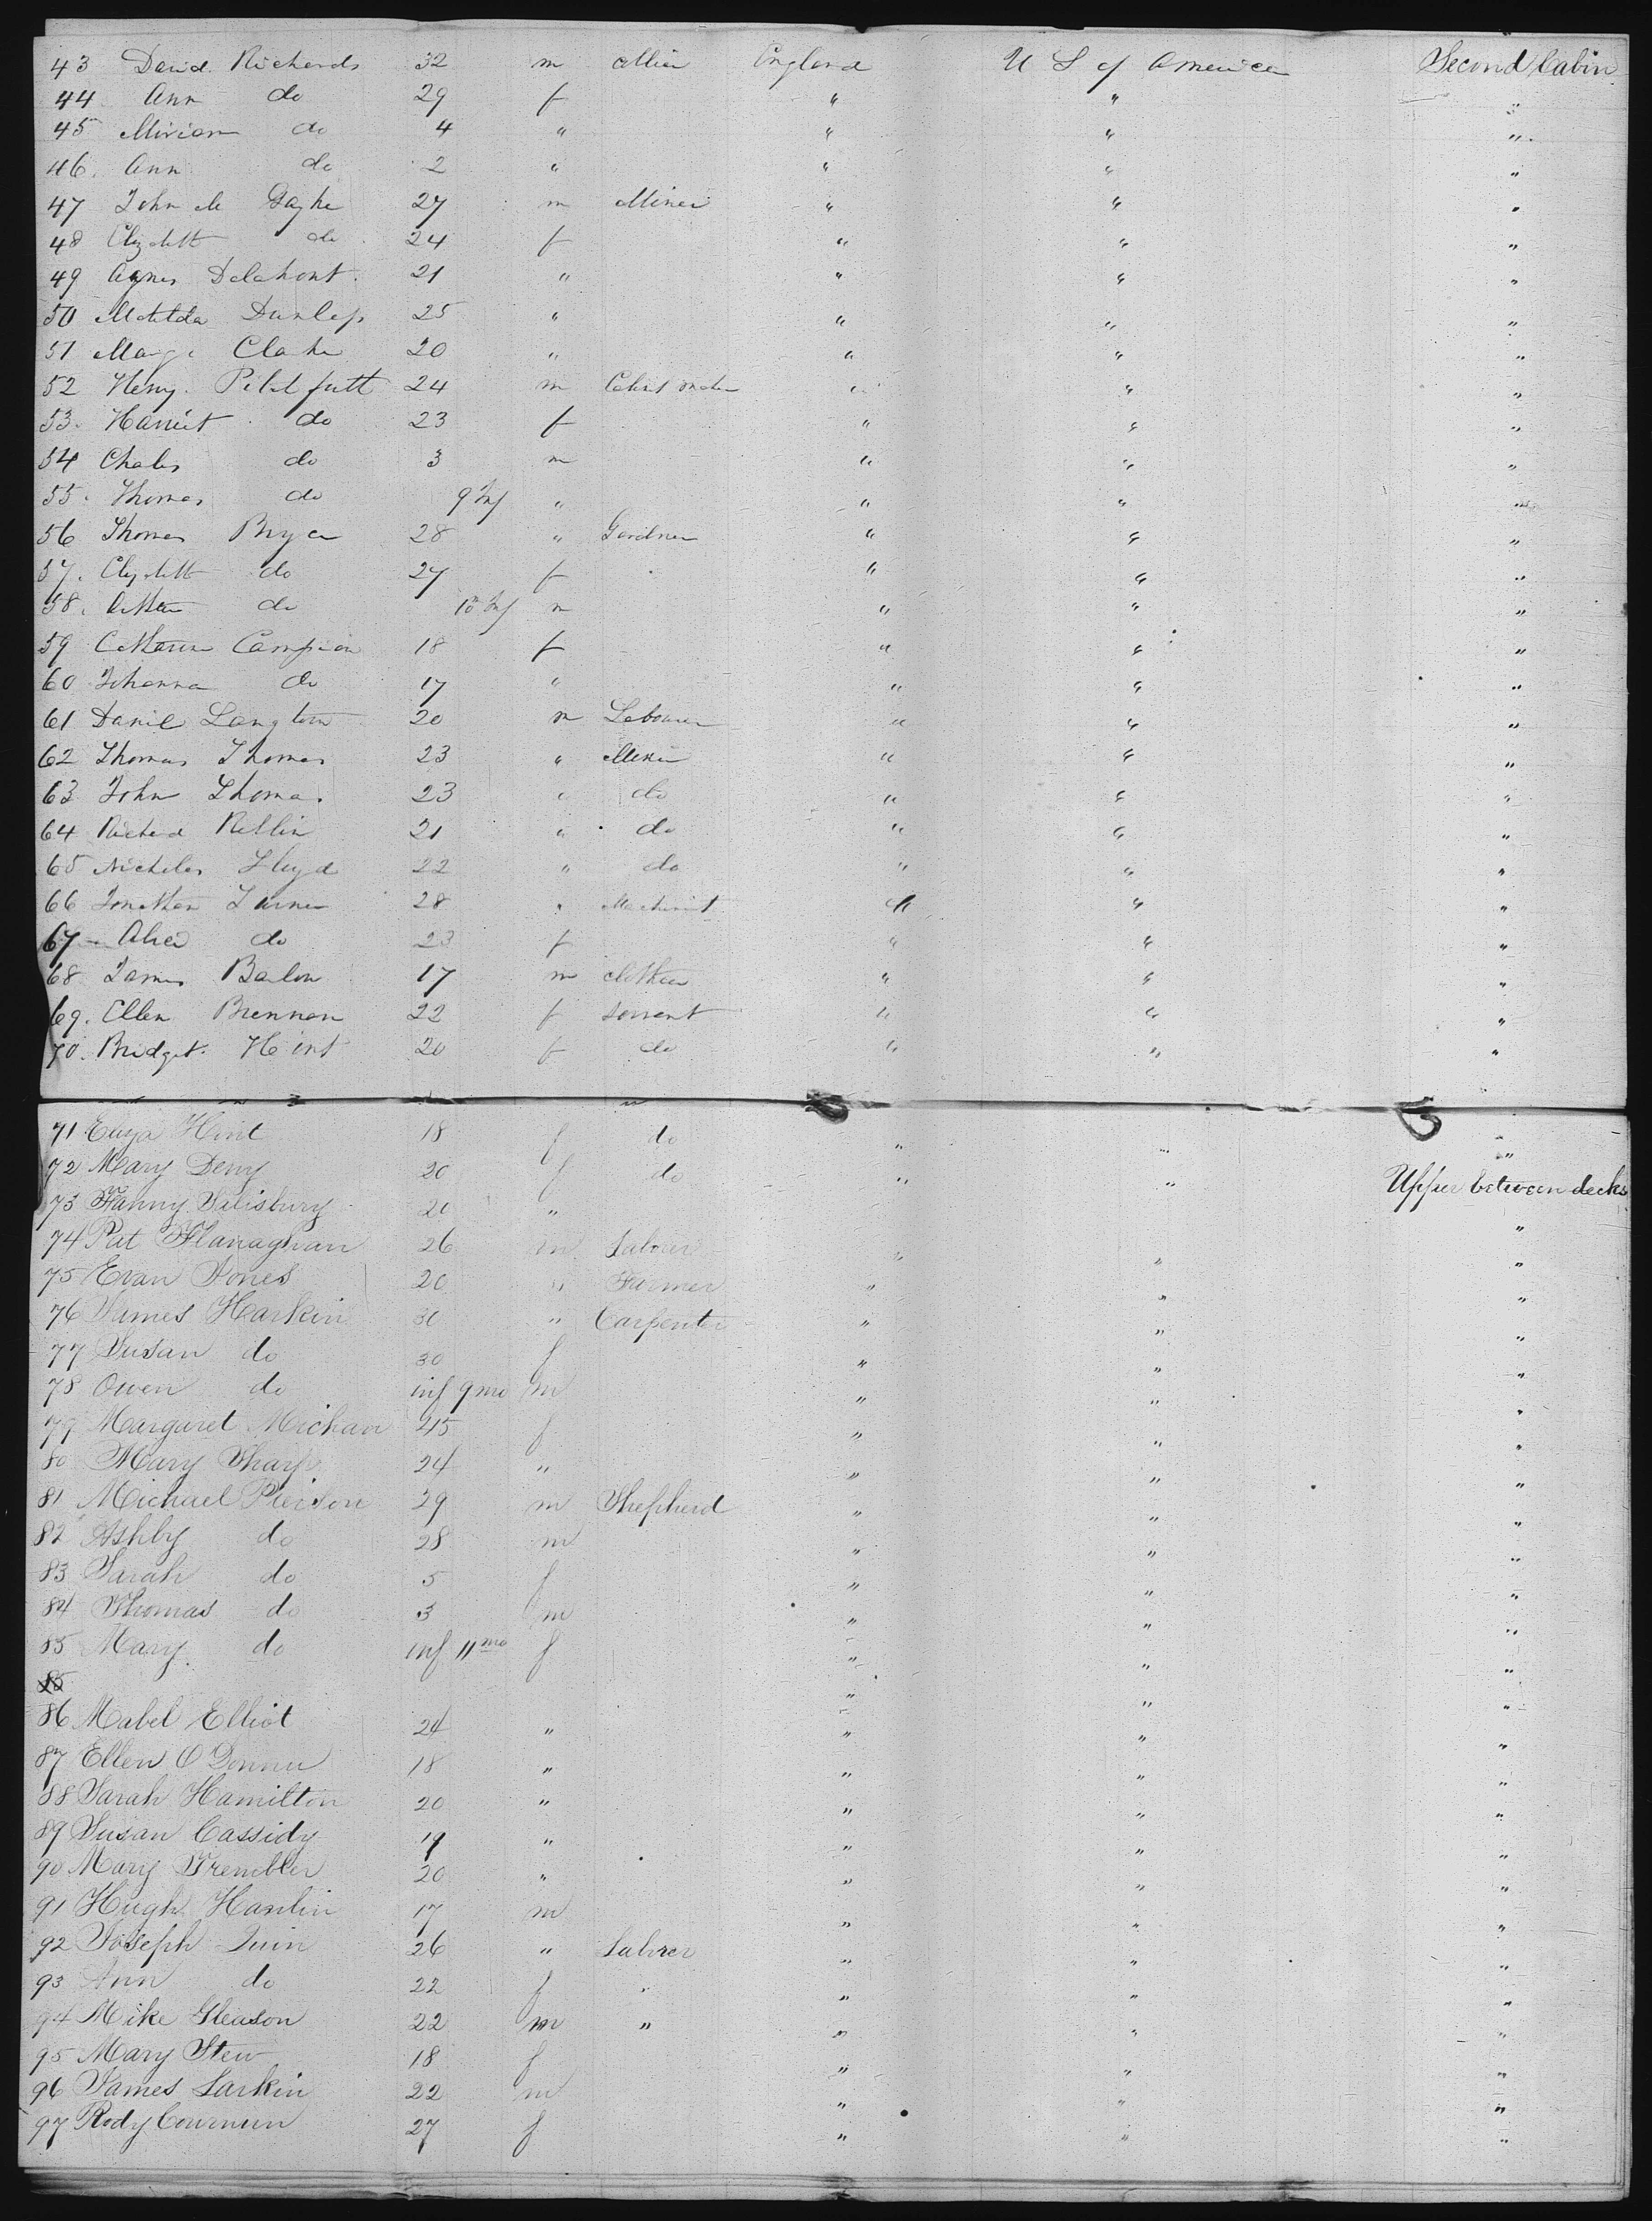 43 David Richards 32 m England U S of America Second Cabin
44 Ann do 29 f " " "
45 Miriam do 4 " " " "
46. Ann do 2 " " " "
47 John 27 m Miner " " "
48 do 24 f " " "
49 Agnes Delahont. 21 " " " "
50 Matilda Dunlop 25 " " " "
51 Clarke 20 " " " "
52 Henry. 24 m " " "
53. Harriet do 23 f " " "
54 Charles do 3 m " " "
55. Thomas do 9 Inf " " " "
56 Thomas Bryce 28 " Gardner " " "
57. do 27 f " " "
58. do 10 m Inf m " " "
59 Campion 18 f " " "
60 Johanna do 17 " " " "
61 Daniel Langton 20 m Labourer " " "
62 Thomas Thomas 23 " Miner " " "
63 John Thomas 23 " do " " "
64 Richard 21 " do " " "
65 Nicholas Lloyd 22 " do " " "
66 Jonathan Turner 28 " Machinist " " "
67 - Alice do 23 f " " "
68 James 17 m " " "
69. Ellen Brennan 22 f Servant " " "
70. Bridget. Hint 20 f do " " "
71 Eliza Hint 18 f do " " "
72 Mary Deny 20 f do " " "
73 Fanny Salisbury 20 " Upper between decks
74 Pat Flanaghan 26 m Labrer " " "
75 Evan Jones 20 " Farmer " " "
76 James Harkin 30 " Carpenter " " "
77 Susan do 30 f " " "
78 Owen do inf 9 mo m " " "
79 Margaret 45 f " " "
80 Mary Sharp 24 " " " "
81 Michael Pierson 29 m Shepherd " " "
82 Ashby do 28 m " " "
83 Sarah do 5 f " " "
84 Thomas do 3 m " " "
85 Mary do inf 11 mo f " " "
85 " " "
86 Mabel Elliot 24 " " " "
87 Ellen 18 " " " "
88 Sarah Hamilton 20 " " " "
89 Susan Cassidy 19 " " " "
90 Mary Trembler 20 " " " "
91 Hugh Hanlin 17 m " " "
92 Joseph Quin 26 " Labrer " " "
93 Ann do 22 f " " "
94 Mike Gleason 22 m " " " "
95 Mary Stew 18 f " " "
96 James Larkin 22 m " " "
97 Rody 27 f " " "